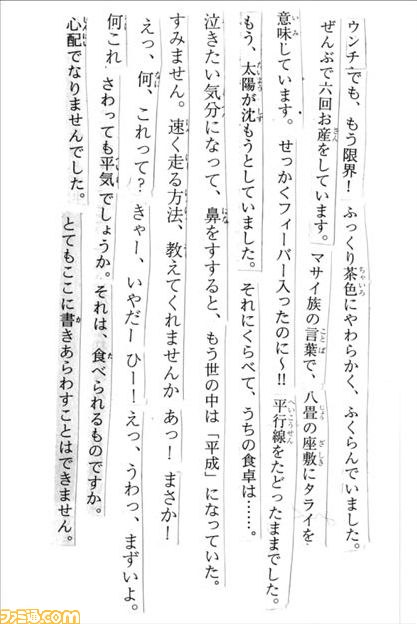 ウンチ でも、もう限界！ ふっくり茶色にやわらかく、ふくらんでいました。
ぜんぶで六回お産をしています。マサイ族の言葉で、八畳の座敷にタライを
意味しています。せっかくフィーバー入ったのに〜!! 平行線をたどったままでした。
もう、太陽が沈もうとしていました。それにくらべて、うちの食卓は……。
泣きたい気分になって、鼻をすすると、もう世の中は「平成」になっていた。
すみません。速く走る方法、教えてくれませんか あっ！まさか！
えっ、何、これって？ きゃー、いやだー ひー！えっ、うわっ、まずいよ。
何これ さわっても平気でしょうか。それは、食べられるものですか。
心配でなりませんでした。とてもここに書きあらわすことはできません。
ファミ通.com